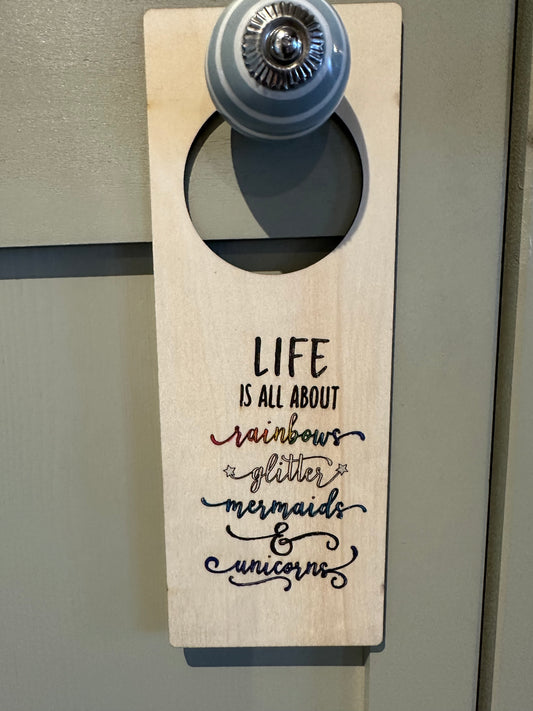 LIFE
IS ALL ABOUT
rainbows
glitter
mermaids
&
unicorns